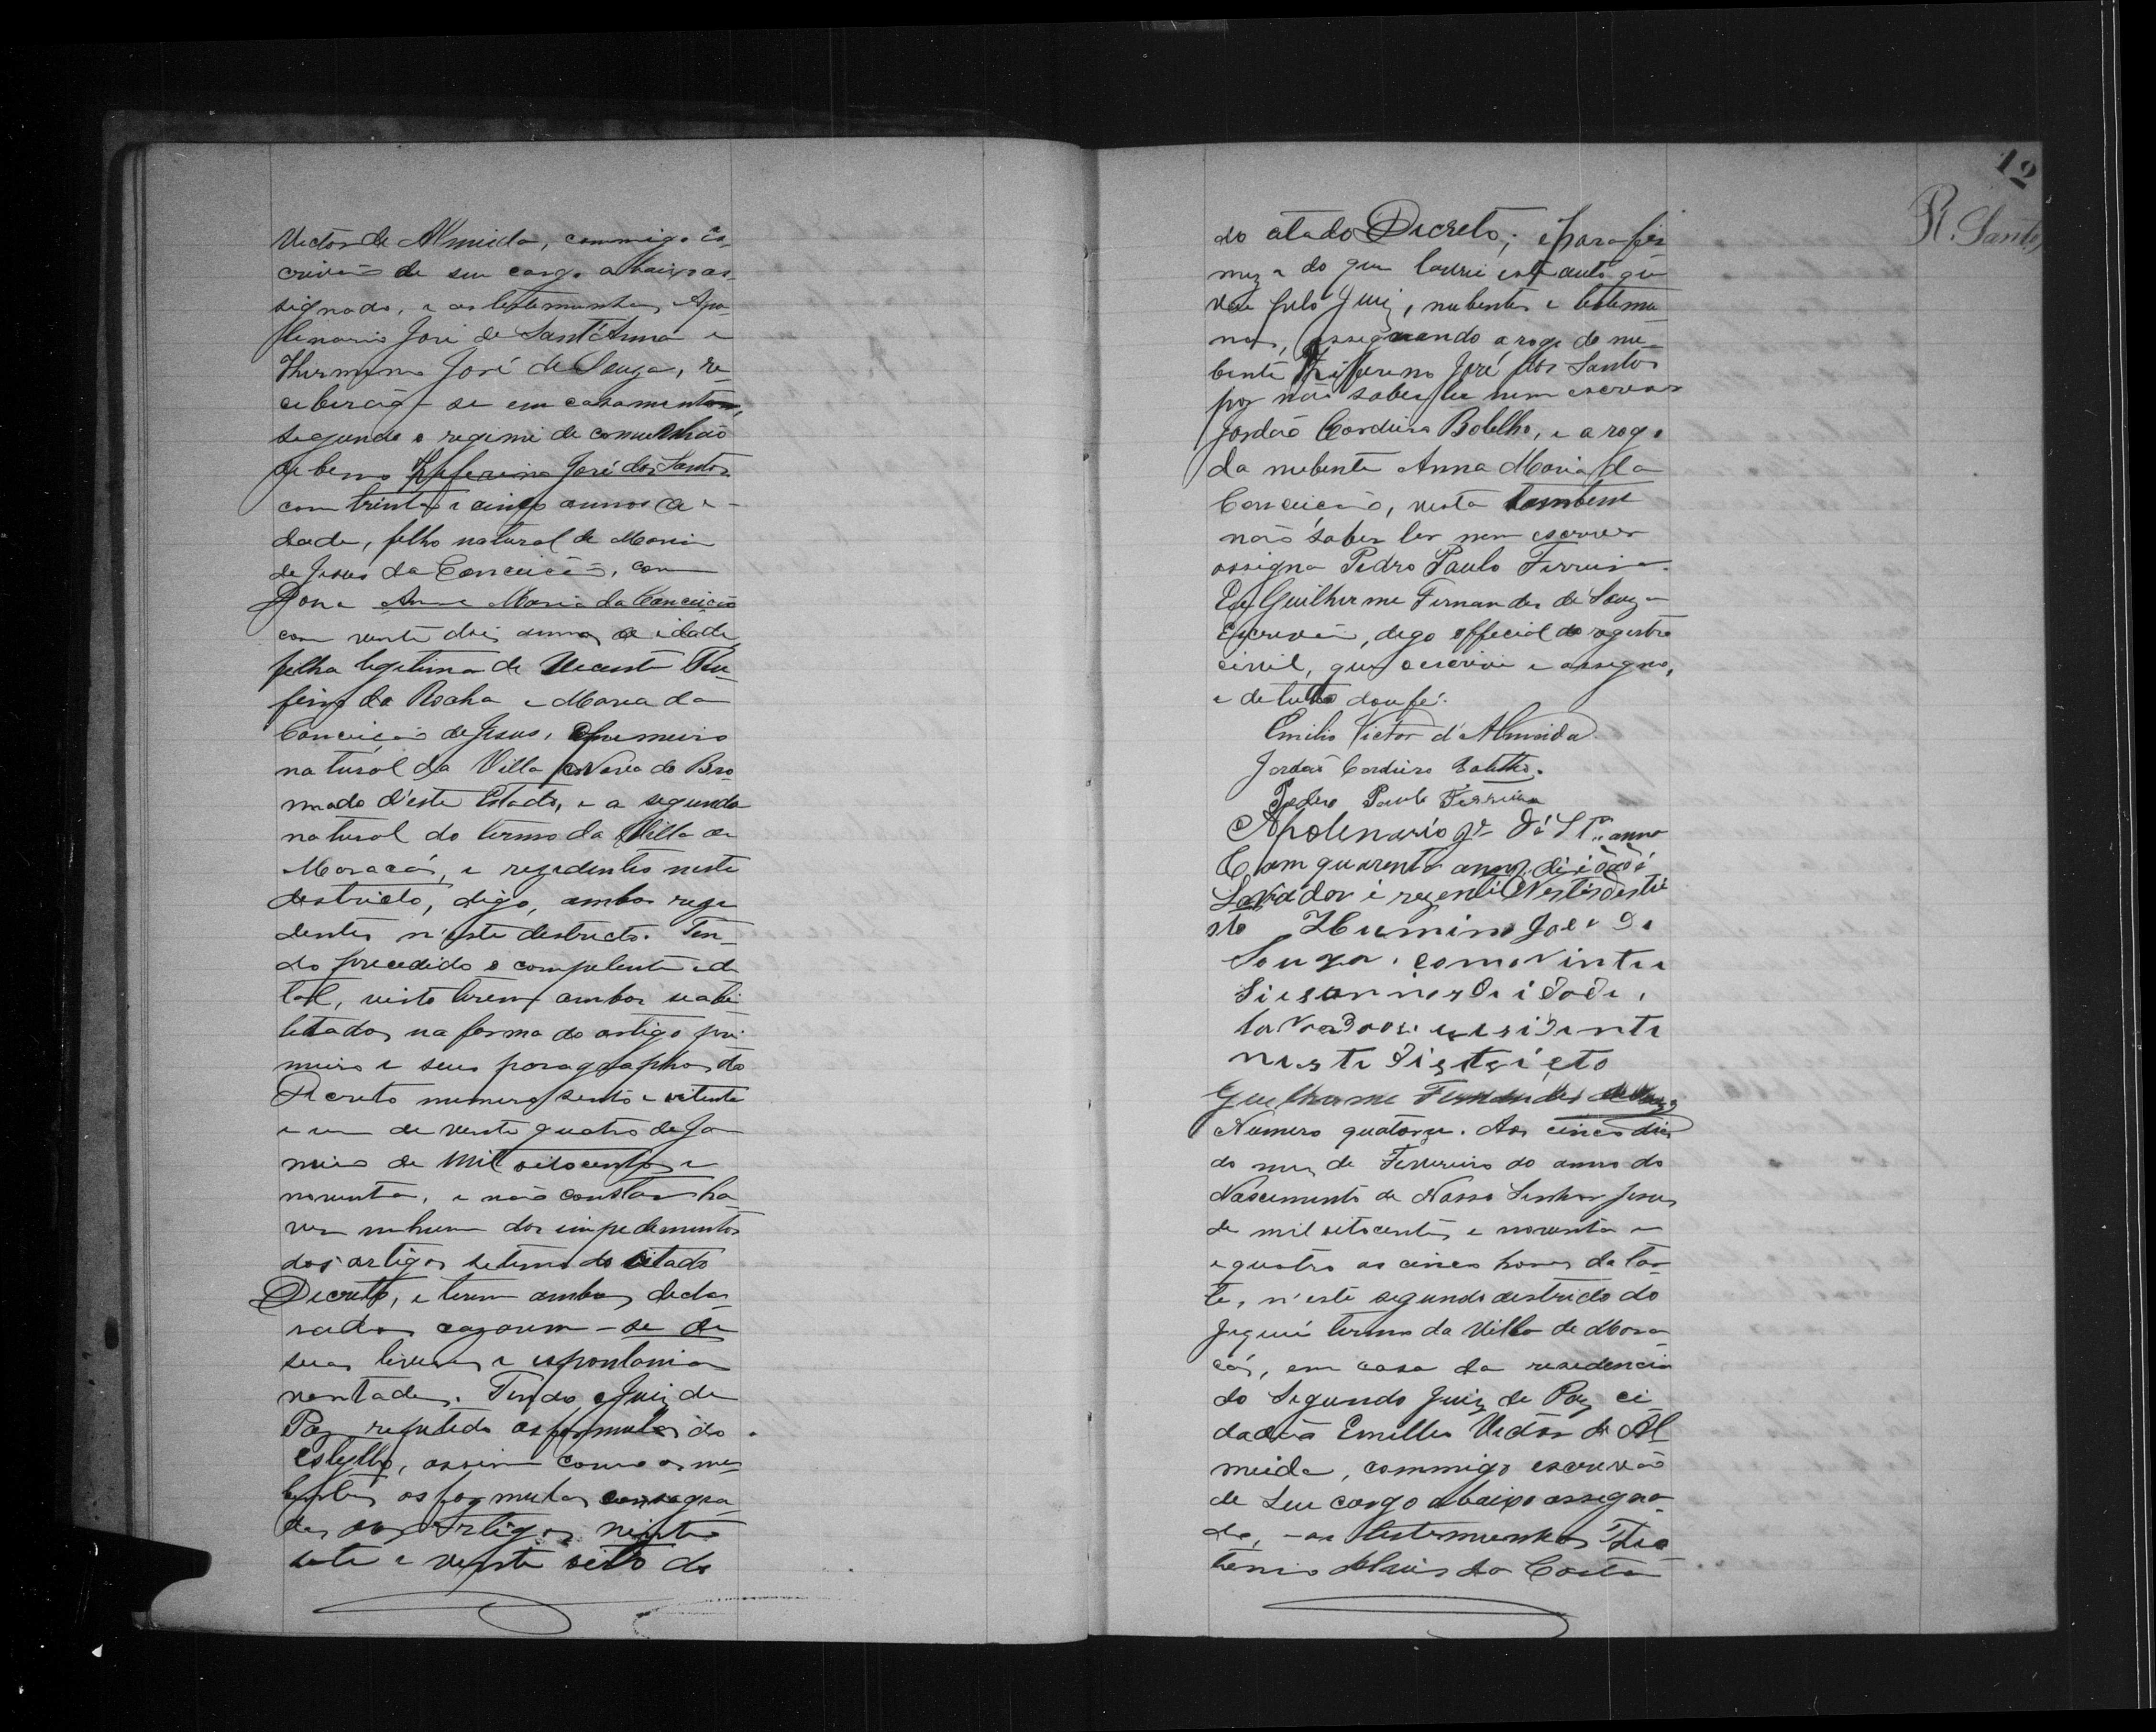 Victor de Almeida, commigo Es-
crivão de seu cargo abaixo as-
signado, e as testemunhas Apo-
linario José de Sant'Anna e
Hermino José de Souza, re-
ceberão-se em casamento,
segundo o regimi de comunhão
de bens Zeferino José dos Santos
com trinta e cinco annos de i-
dade, filho natural de Maria
de Jesus da Conceição, com
Dona Anna Maria da Conceição
com vinte dois annos de idade
filha legitima de Vicente
da Rocha e Maria da
Conceição de Jesus, o primeiro
natural da Villa Nova do Bro-
mado d'este Estado, e a segunda
natural do termo da Villa de
Maracás, e rezidentes neste
destricto, digo, ambos rezi
dentes n'este destricto. Ten-
do precedido o competente edi
tal, visto terem ambos se abi-
litados na forma do artigo pri-
meiro e seus paragraphos do
Decreto numero sento e oitenta
e um de vente quatro de Ja
neiro de mil oitocentos e
noventa, e não constar ha
ver nenhum dos impedimentos
dos artigos setimo do citado
Decreto, e terem ambos decla-
rados cazarem-se de
suas livres e espontania
vontades. Tendo o Juiz de
Paz repitido as formulas do
Estyllo, assim como os nu
bentes as formulas consagra-
das nos artigos vinte
sete e vente oito do
12
R. Santos
do citado Decreto; e para fir
meza do que lavrei este auto que
vai pelo Juiz, nubentes e testemu
nas, assignando a rogo do nu-
bente Zeferino José dos Santos
por não saber ler nem escrever
Jordão Cordeiro Botelho, e a rogo
da nubente Anna Maria da
Conceição, visto tambem
não saber ler nem escrever
assigna Pedro Paulo Ferreira.
Eu Guilherme Fernandes de Souza
Escrivão, digo official do registro
civil, que o escrivi e assigno,
e de tudo dou fé.
Emilio Victor d'Almeida
Jordão Cordeiro Botelho.
Pedro Paulo Ferreira
Apolenario Je. dá St.ª anna
Com quarenta annos di idade
Lavrador i rezenti Nestidestri
sto Hermino Joze De
Souza. com vinte
Sies annos de idade,
lavrador. e residente
neste districto
Guilherme Fernandes de Souza
Numero quatorze. Aos cinco dias
do mez de Fevereiro do anno do
Nascimento de Nosso Senhor Jesus
de mil oitocentos e noventa e
e quatro as cinco horas da tar
te, n'este segundo destricto do
Jiquié termo da Villa de Mara
cás, em casa da residencia
do Segundo Juiz de Paz ci-
dadão Emillio Victor de Al
meida, commigo escrivão
de seu cargo abaixo assigna-
do, e as testemunhas
da Costa